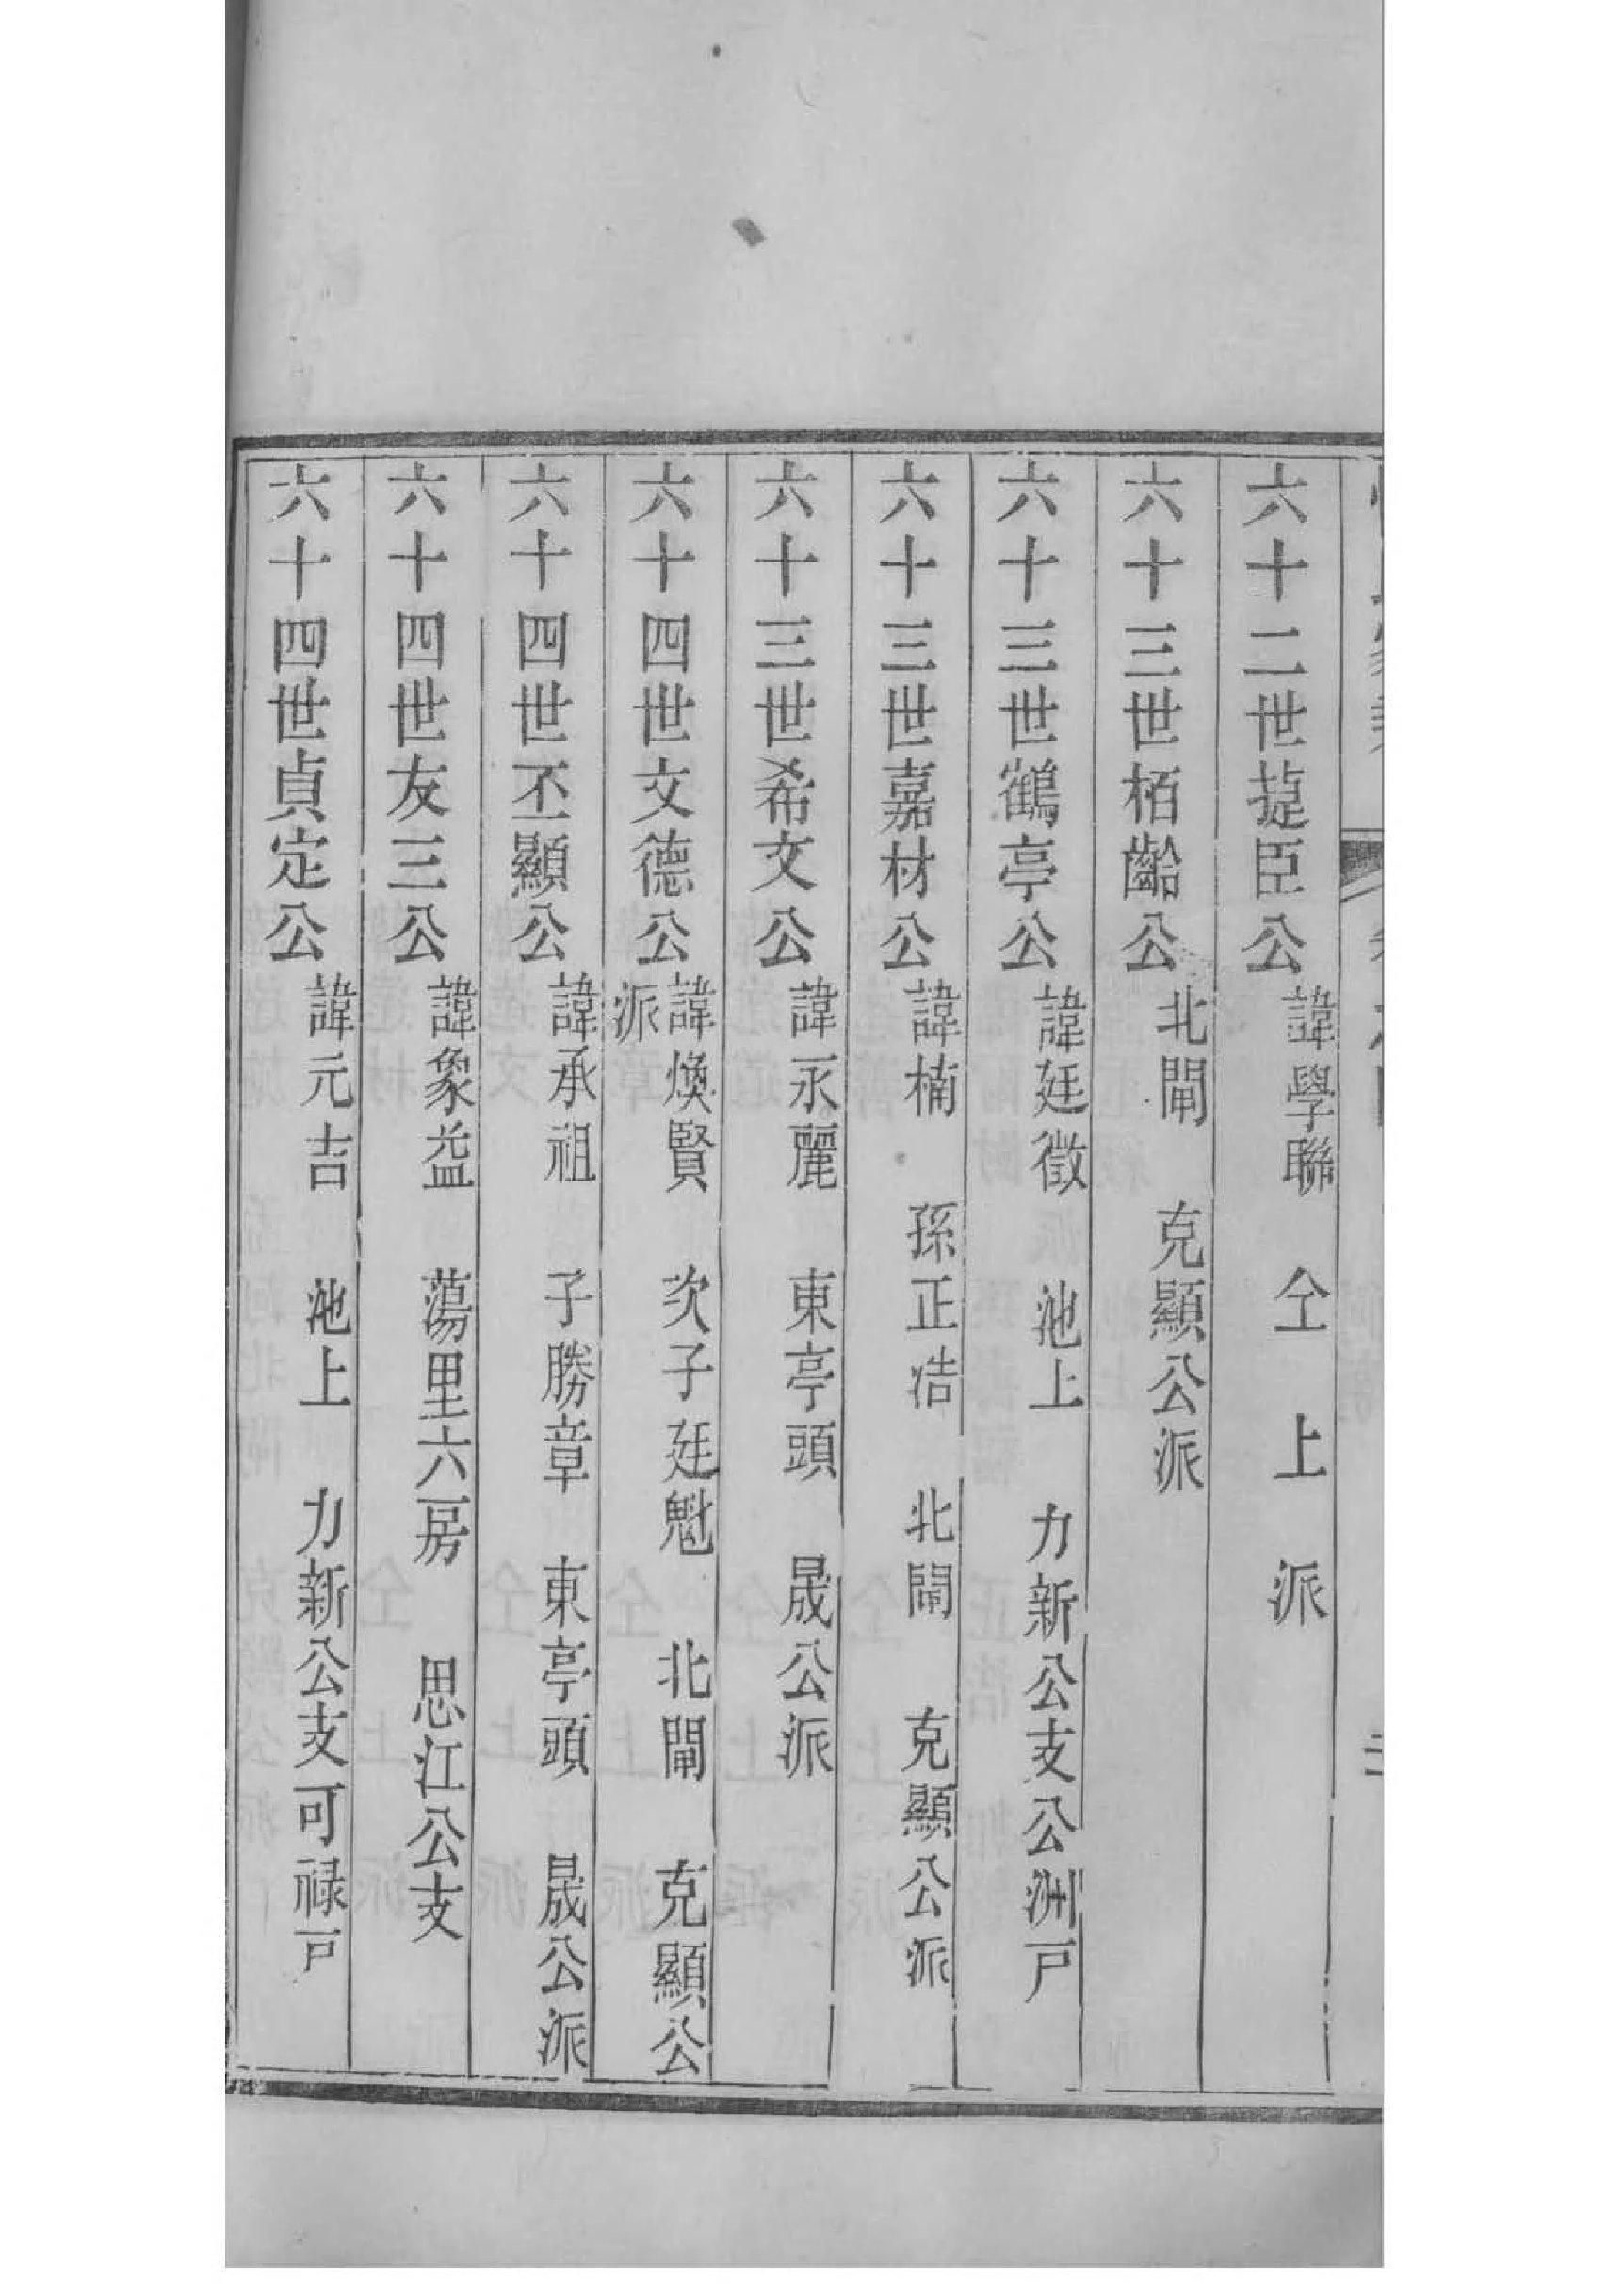 六十二世㨗臣公 諱學聯 仝 上 派
六十三世栢齡公 北閘 克顯公派
六十三世鶴亭公 諱廷徵 池上 力新公支公洲戸
六十三世嘉材公 諱楠 孫正浩 北閘 克顯公派
六十三世希文公 諱永麗 東亭頭 晟公派
六十四世文德公 諱煥賢 次子廷魁 北閘 克顯公
派
六十四世丕顯公 諱承祖 子勝章 東亭頭 晟公派
六十四世友三公 諱象益 蕩里六房 思江公支
六十四世貞定公 諱元吉 池上 力新公支可禄戸